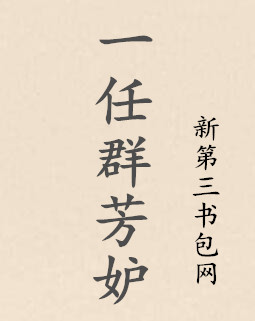 一任群芳妒
新第三书包网